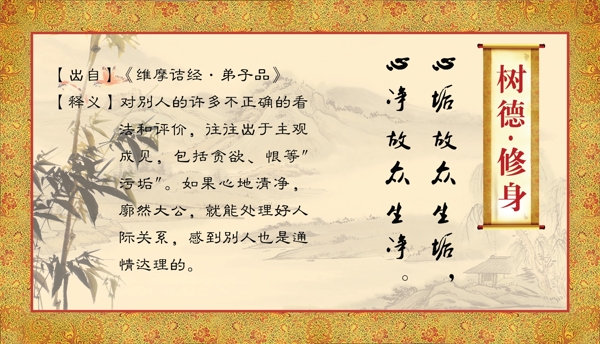 树德·修身
心垢故众生垢，
心净故众生净。
【出自】《维摩诘经·弟子品》
【释义】对别人的许多不正确的看
法和评价，往往出于主观
成见，包括贪欲、恨等"
污垢"。如果心地清净，
廓然大公，就能处理好人
际关系，感到别人也是通
情达理的。